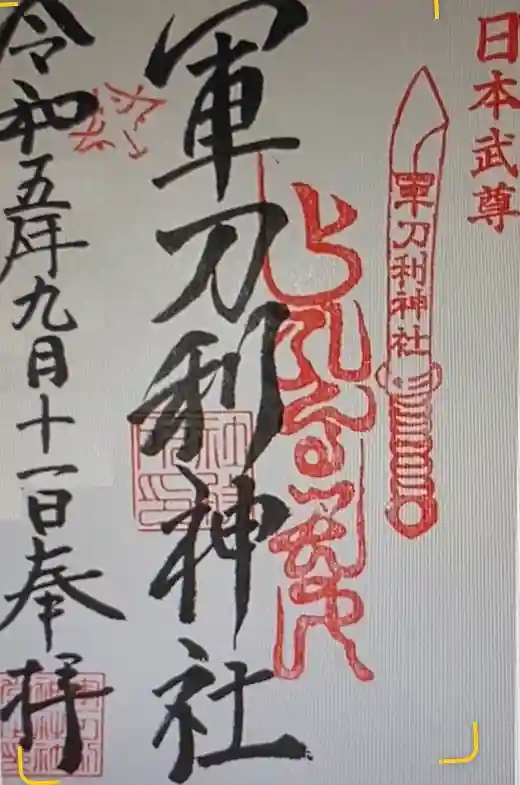 日本武尊
軍刀利神社
軍刀利神社
令和五年九月十一日奉拝